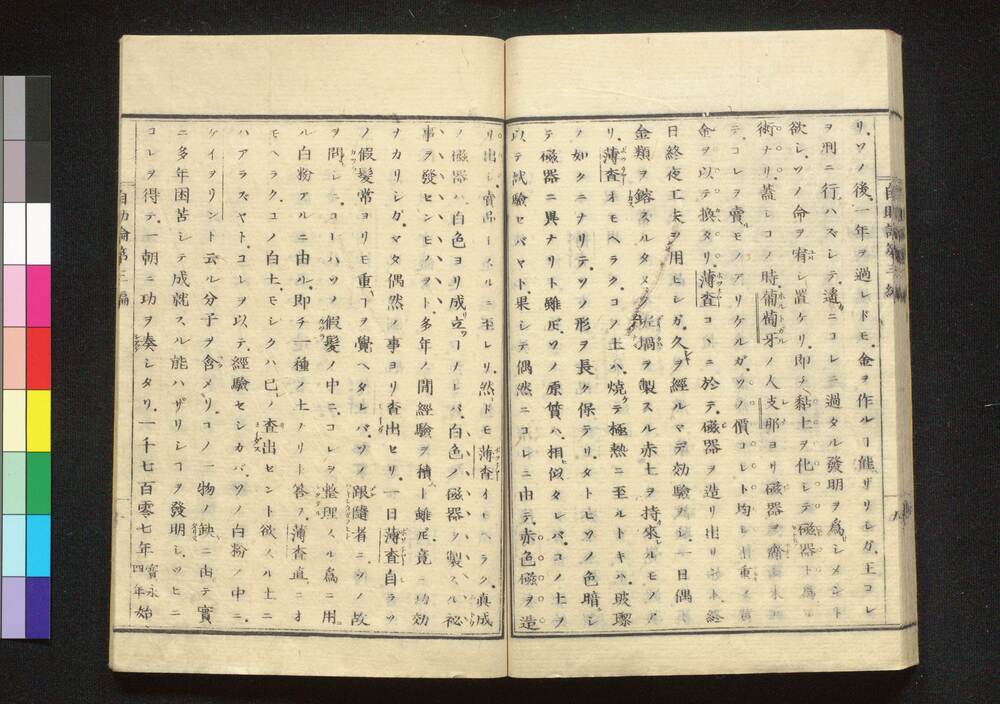 リ、ソノ後、一年ヲ過レドモ、金ヲ作ルヿ能ザリシガ、王コレ
ヲ刑ニ行ハズシテ、遙ニコレニ過タル發明ヲ爲シメント
欲シ、ソノ命ヲ宥シ置ケリ、即チ黏土ヲ化シテ磁器ト爲
術ナリ、蓋シコノ時、葡萄牙ノ人支那ヨリ磁器ヲ齎
テ、コレヲ賣ルモノアリケルガ、ソノ價コレト均シ
金ヲ以テ換タリ、薄査コヽニ於テ、磁器ヲ造リ出
日終夜工夫ヲ用ヒシガ、久ヲ經ルマデ効驗ナシ、一日偶
金類ヲ鎔スルタメ、坩堝ヲ製スル赤土ヲ持來ルモノア
リ、薄査オモヘラク、コノ土ハ、燒テ極熱ニ至ルトキハ、玻瓈
ノ如クニナリテ、ソノ形ヲ長ク保テリ、タトヒソノ色暗シ
テ磁器ニ異ナリト雖𪜈、ソノ原質ハ、相似タレバ、コノ土ヲ
以テ試驗セバヤト、果シテ偶然ニコレニ由テ、赤色磁ヲ造
リ出シ、賣ニ至レリ、然ドモ薄査オモヘラク、眞成
ノ磁器ハ、白色ヨリ成立モノナレバ、白色ノ磁器ヲ製スル祕
事ヲ發センモノヲト、多年ノ間經驗ヲ積ト雖𪜈、竟ニ功効
ナカリシガ、マタ偶然ノ事ヨリ査出セリ、一日薄査自ラソ
ノ假髪常ヨリモ重キヲ覺ヘタレバ、ソノ跟隨者ニソノ故
ヲ問シニ、コハソノ假髪ノ中ニ、コレヲ整理スル爲ニ用
ル白粉アルニ由ル、即チ一種ノ土ナリト答フ、薄査直ニオ
モヘラク、コノ白土、モシクハ己ノ査出セント欲スル土ニ
ハアラズヤト、コレヲ以テ、經驗セシカバ、ソノ白粉ノ中ニ、
ケイヲリント云ル分子ヲ含メリ、コノ一物ノ缺ニ由テ、實
ニ多年困苦シテ成就スル能ハザリシヿヲ發明シ、ツヒニ
コレヲ得テ、一朝ニ功ヲ奏シタリ、一千七百零七年寳永四年始
自助論第三編